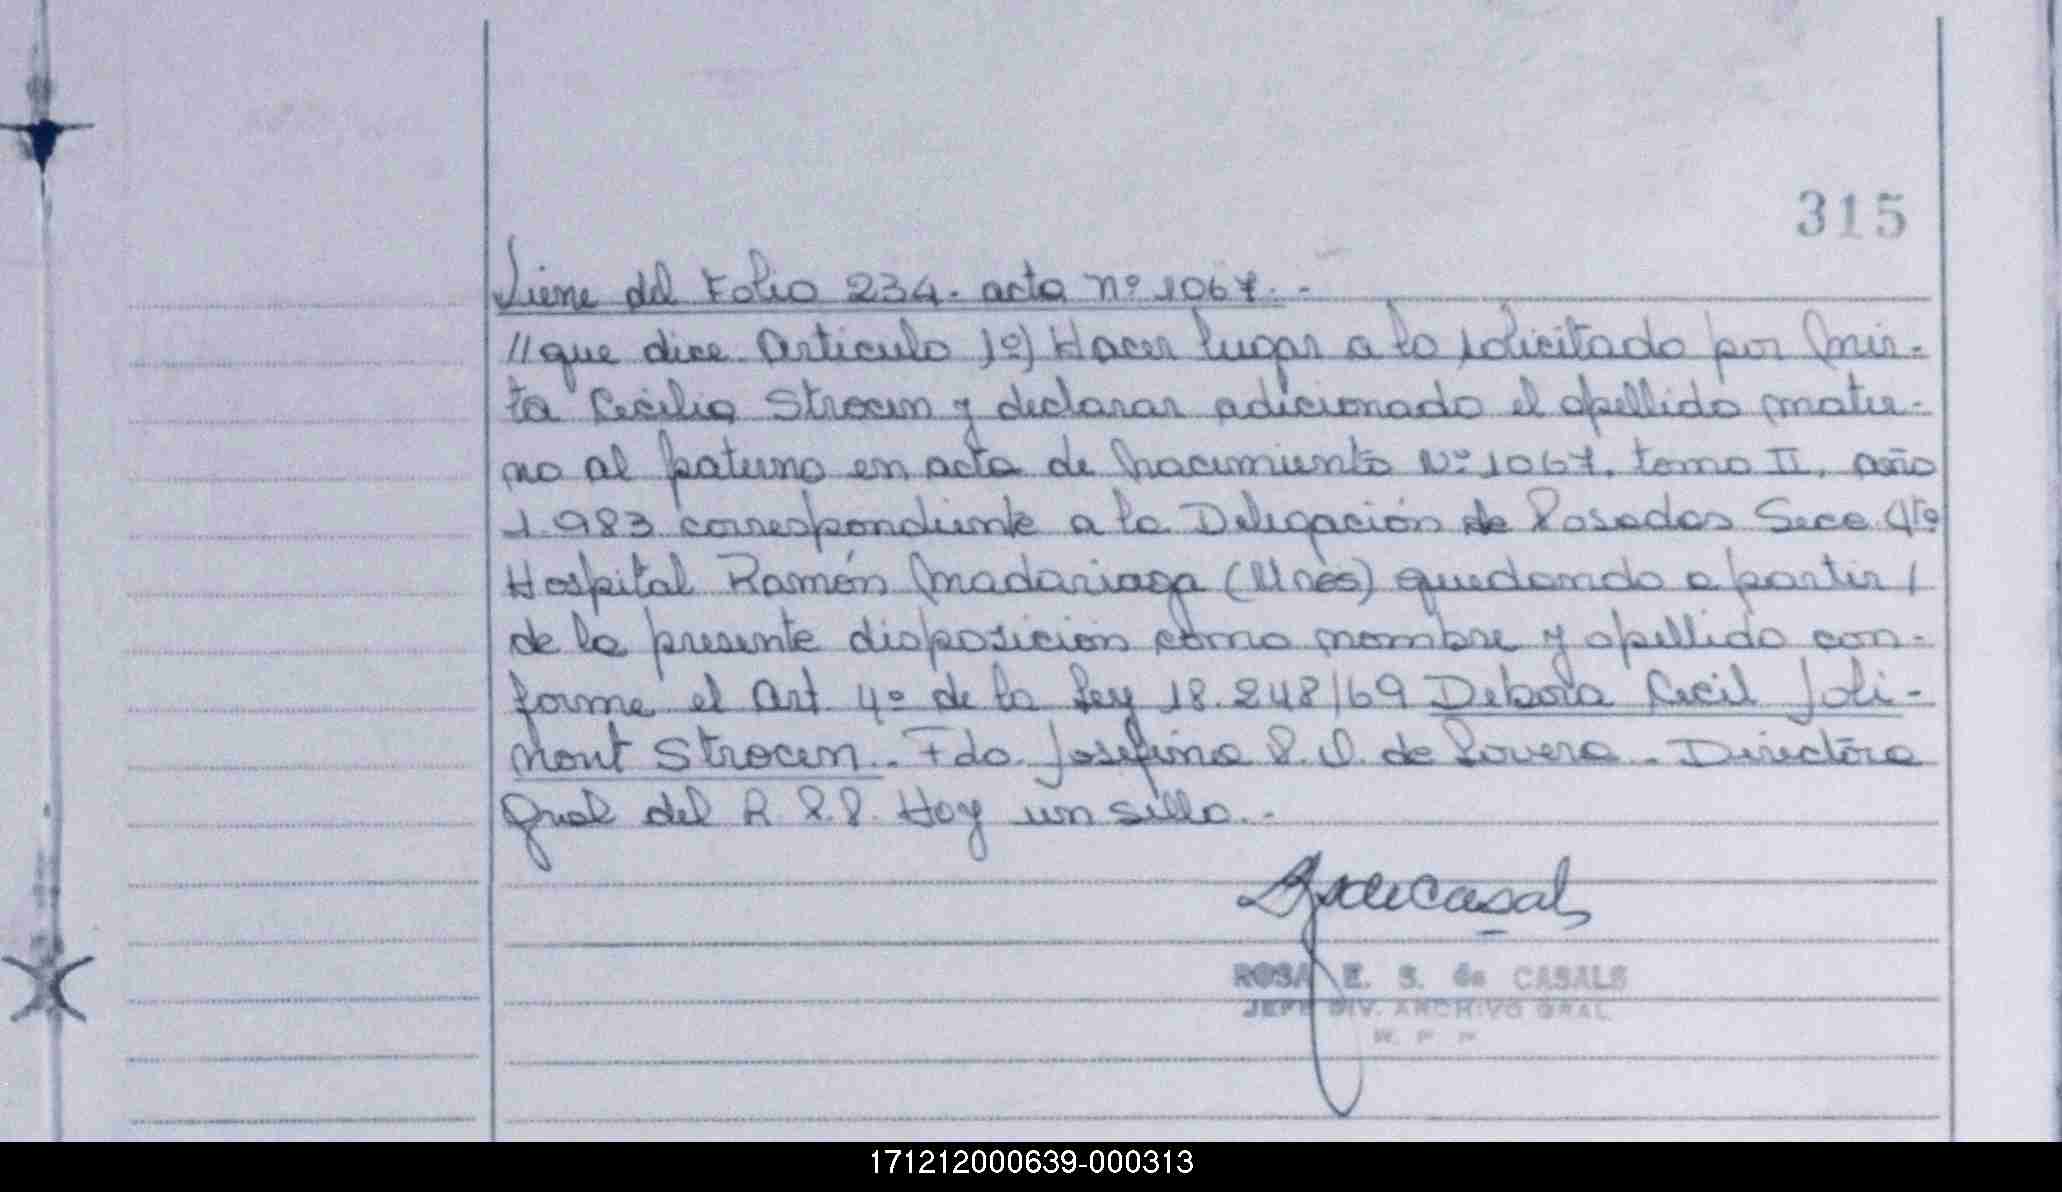 315
Viene del Folio 234. acta nº 1067.-
//que dice Artículo 1º) Hacer lugar a lo solicitado por Mir-
ta Cecilia Strocen y declarar adicionado el apellido mater-
no al paterno en acta de Nacimiento Nº 1067. tomo II. año
1.983 correspondiente a la Delegación de Posadas Secc. 4ta
Hospital Ramón Madariaga (Mnes) quedando a partir /
de la presente disposición como nombre y apellido con-
forme el Art. 4º de la Ley 18.248/69 Debora Cecil Joli-
mont Strocen.. Fdo. Josefina de Lovera.. Directora
Gral del R. P. P. Hoy un sello.-
ROSA E. S. de CASALS
JEFE DIV. ARCHIVO GRAL.
171212000639-000313